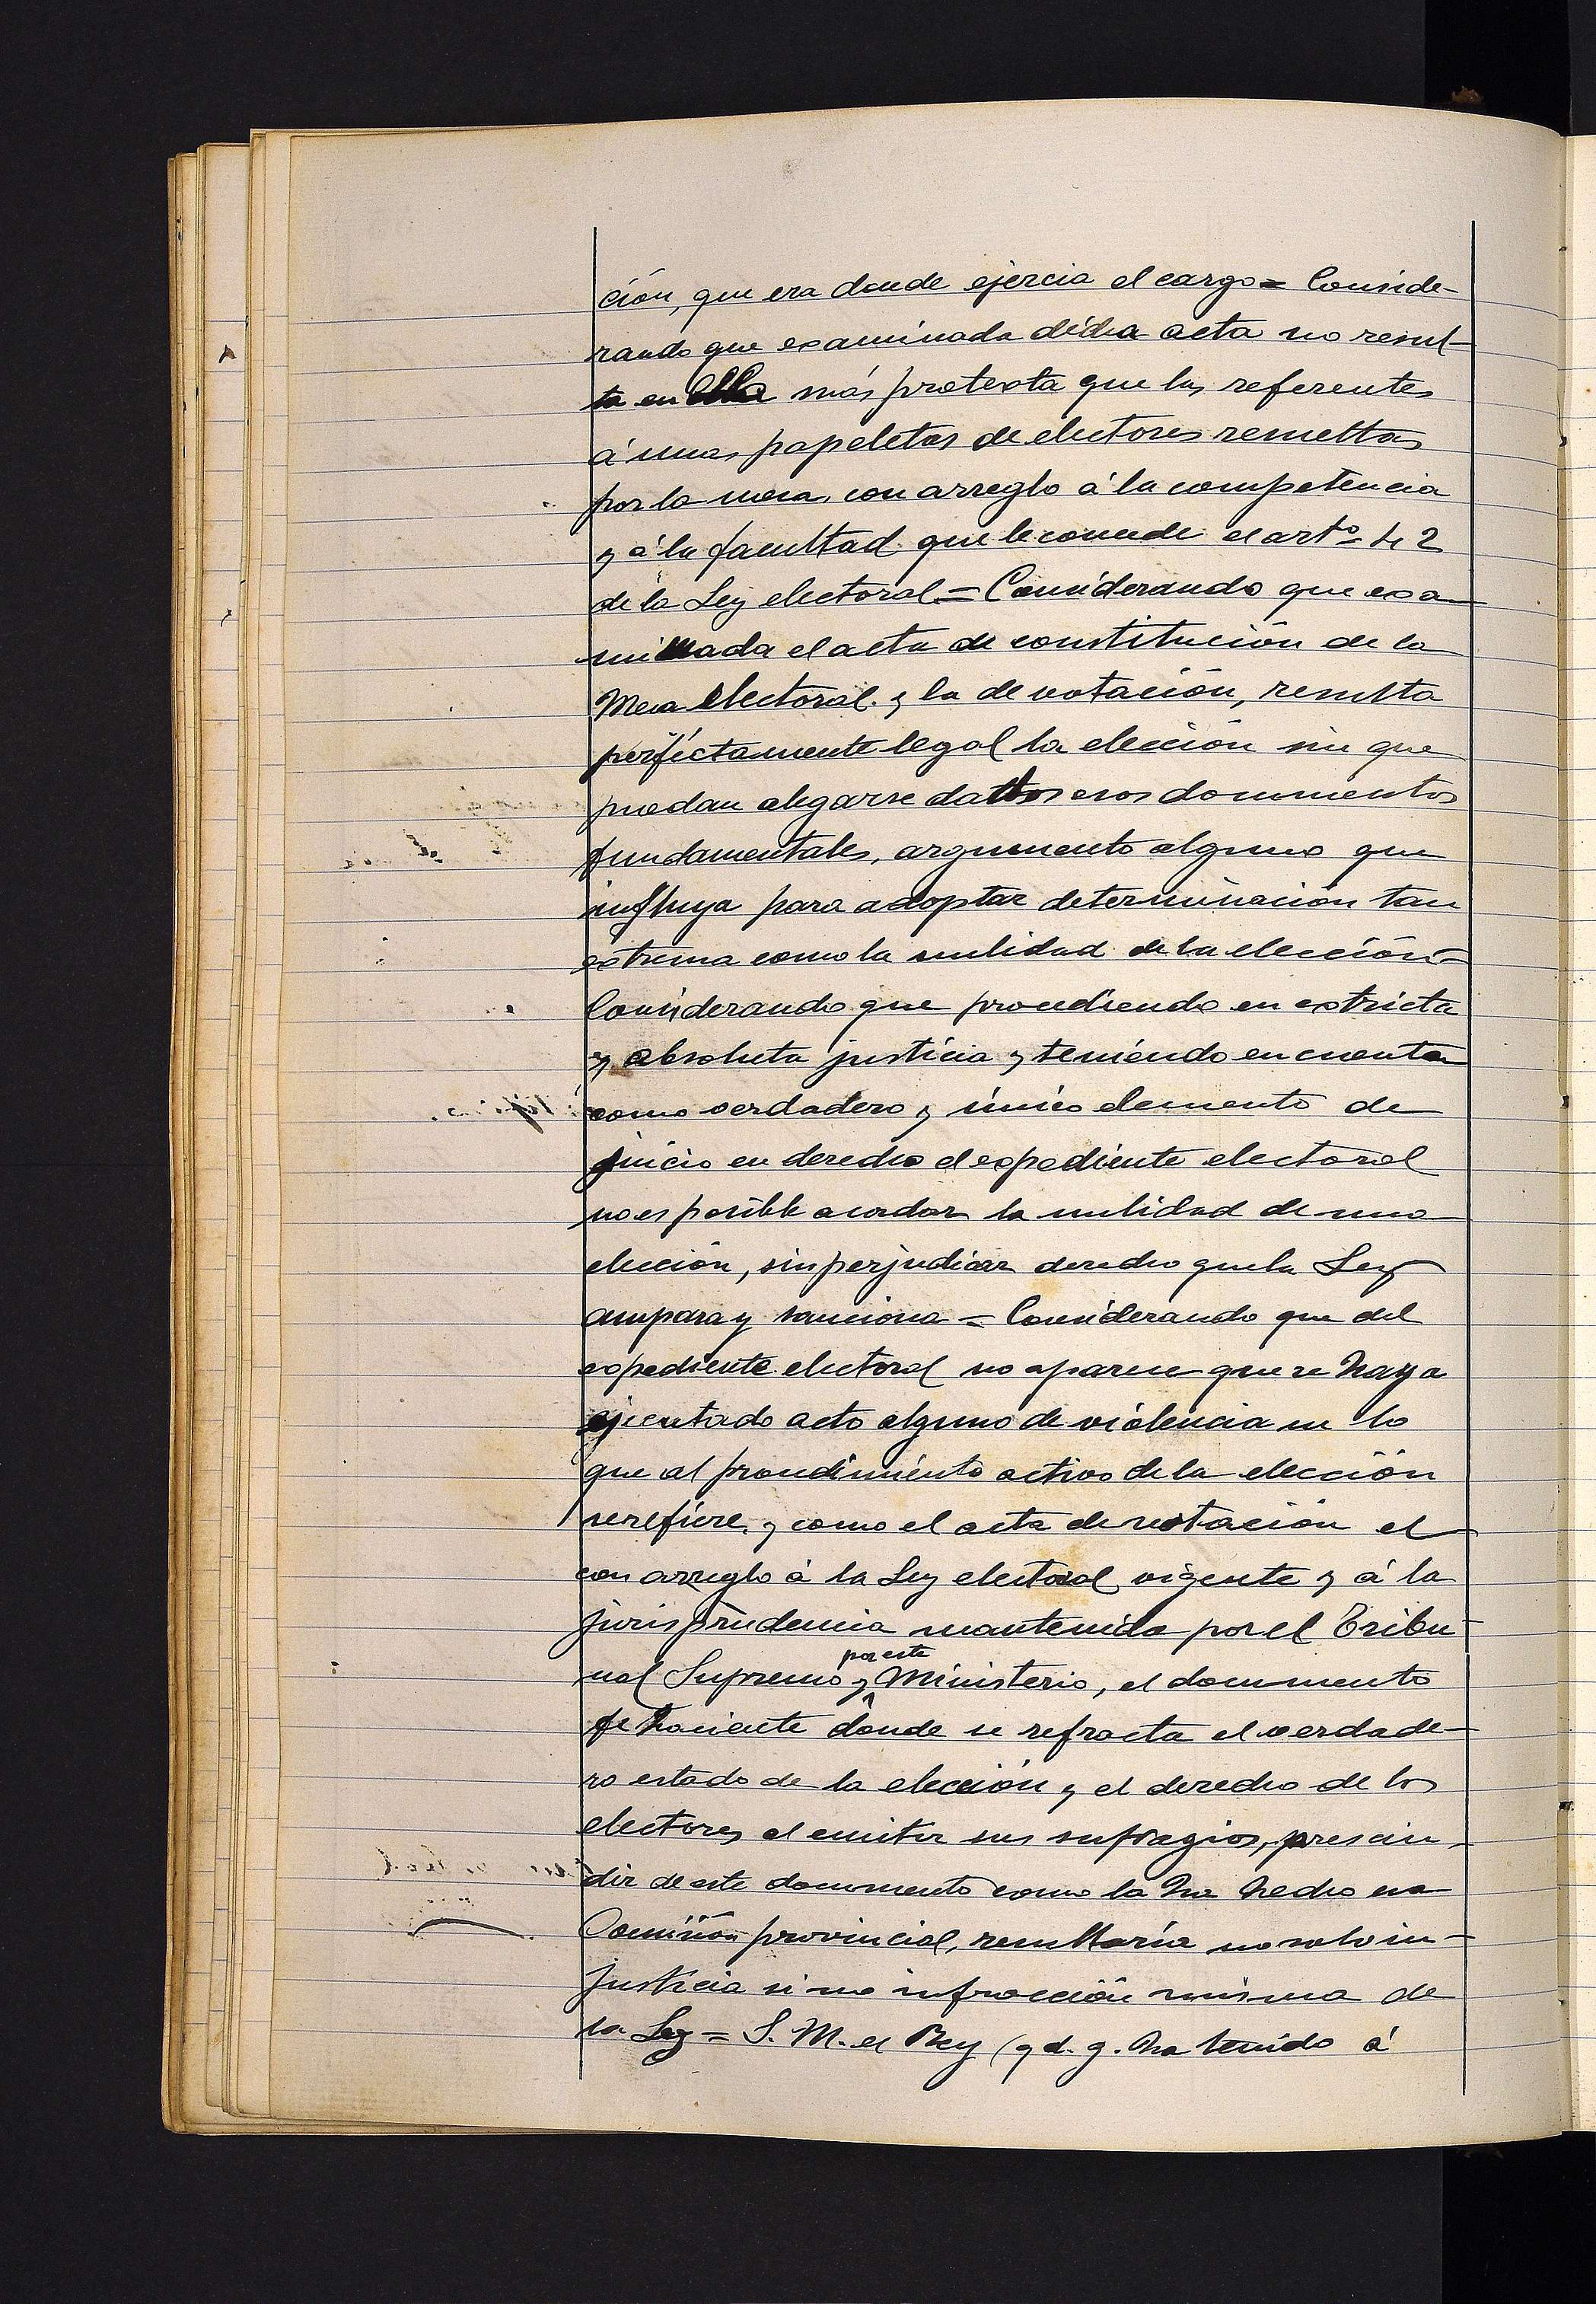 ción, que era donde ejercia el cargo = Conside-
rando que examinada dicha acta no resul-
ta en ella más protexta que las referentes
á unas papeletas de electores resueltas
por la mesa, con arreglo á la competencia
y á la facultad que le concede el artº 42
de la Ley electoral = Considerando que exa-
minada el acta de constitución de la
Mesa electoral y la de votación, resulta
perfectamente legal la elección sin que
puedan alegarse dattos esos documentos
fundamentales, argumento alguno que
influya para adoptar determinación tan
extrema como la nulidad de la elección =
Considerando que procediendo en extricta
y absoluta justicia y teniendo en cuenta
como verdadero y único elemento de
juicio en derecho el expediente electoral
no es posible acordar la nulidad de una
elección, sin perjudicar derecho que la Ley
ampara y sanciona = Considerando que del
expediente electoral no aparece que se haya
ejecutado acto alguno de violencia en lo
que al procedimiento activo de la elección
se refiere, y como el acta de votación el
con arreglo á la Ley electoral vigente y á la
jurisprudencia mantenida por el Tribu-
nal Supremo y por este Ministerio, el documento
fehaciente donde se refracta el verdade-
ro estado de la elección y el derecho de los
electores al emitir sus sufragios, prescin-
dir de este documento como la ha hecho esa
Comisión provincial, resultaría no solo in-
justicia si no infracción misma de
la Ley = S. M. el Rey (q d. g. ha tenido á